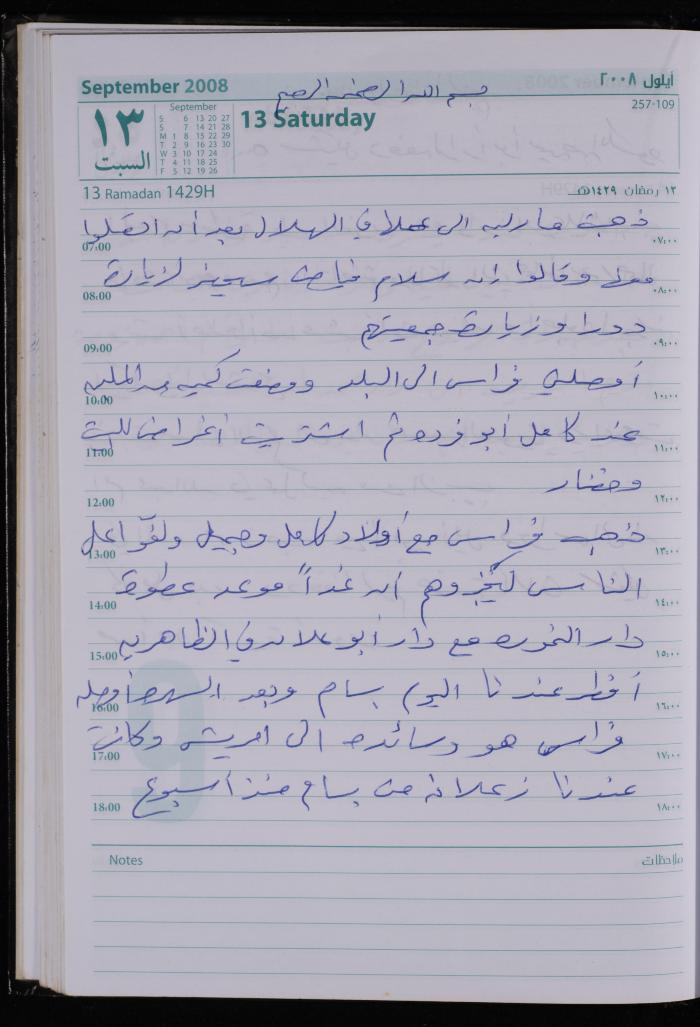 September 2008
أيلول ٢٠٠٨
بسم الله الرحمن الرحيم
257-109
١٣
السبت
September
S 6 13 20 27
S 7 14 21 28
M 1 8 15 22 29
T 2 9 16 23 30
W 3 10 17 24
T 4 11 18 25
F 5 12 19 26
13 Saturday
13 Ramadan 1429H
١٣ رمضان ١٤٢٩هـ
ذهبت ماريه الى عملها في الهلال بعد أن اتصلوا
07:00 ٠٧:٠٠
معها وقالوا ان سلام فياض سيحضر لزيارة
08:00 ٠٨:٠٠
دورا وزيارة جمعيتهم
09:00 ٠٩:٠٠
أوصلني فراس الى البلد ووضعت كميه من الملبن
10:00 ١٠:٠٠
عند كامل أبو فرده ثم اشتريت أغراض للبيت
11:00 ١١:٠٠
وخضار
12:00 ١٢:٠٠
ذهب فراس مع أولاد كامل وجميل ولفوا على
13:00 ١٣:٠٠
الناس ليخبروهم ان غداً موعد عطوة
14:00 ١٤:٠٠
دار النموره مع دار أبو علان في الظاهريه
15:00 ١٥:٠٠
أفطر عندنا اليوم بسام وبعد السهره أوصله
16:00 ١٦:٠٠
فراس هو وسائده الى امريش وكانت
17:00 ١٧:٠٠
عندنا زعلانه من بسام منذ أسبوع
18:00 ١٨:٠٠
Notes
ملاحظات